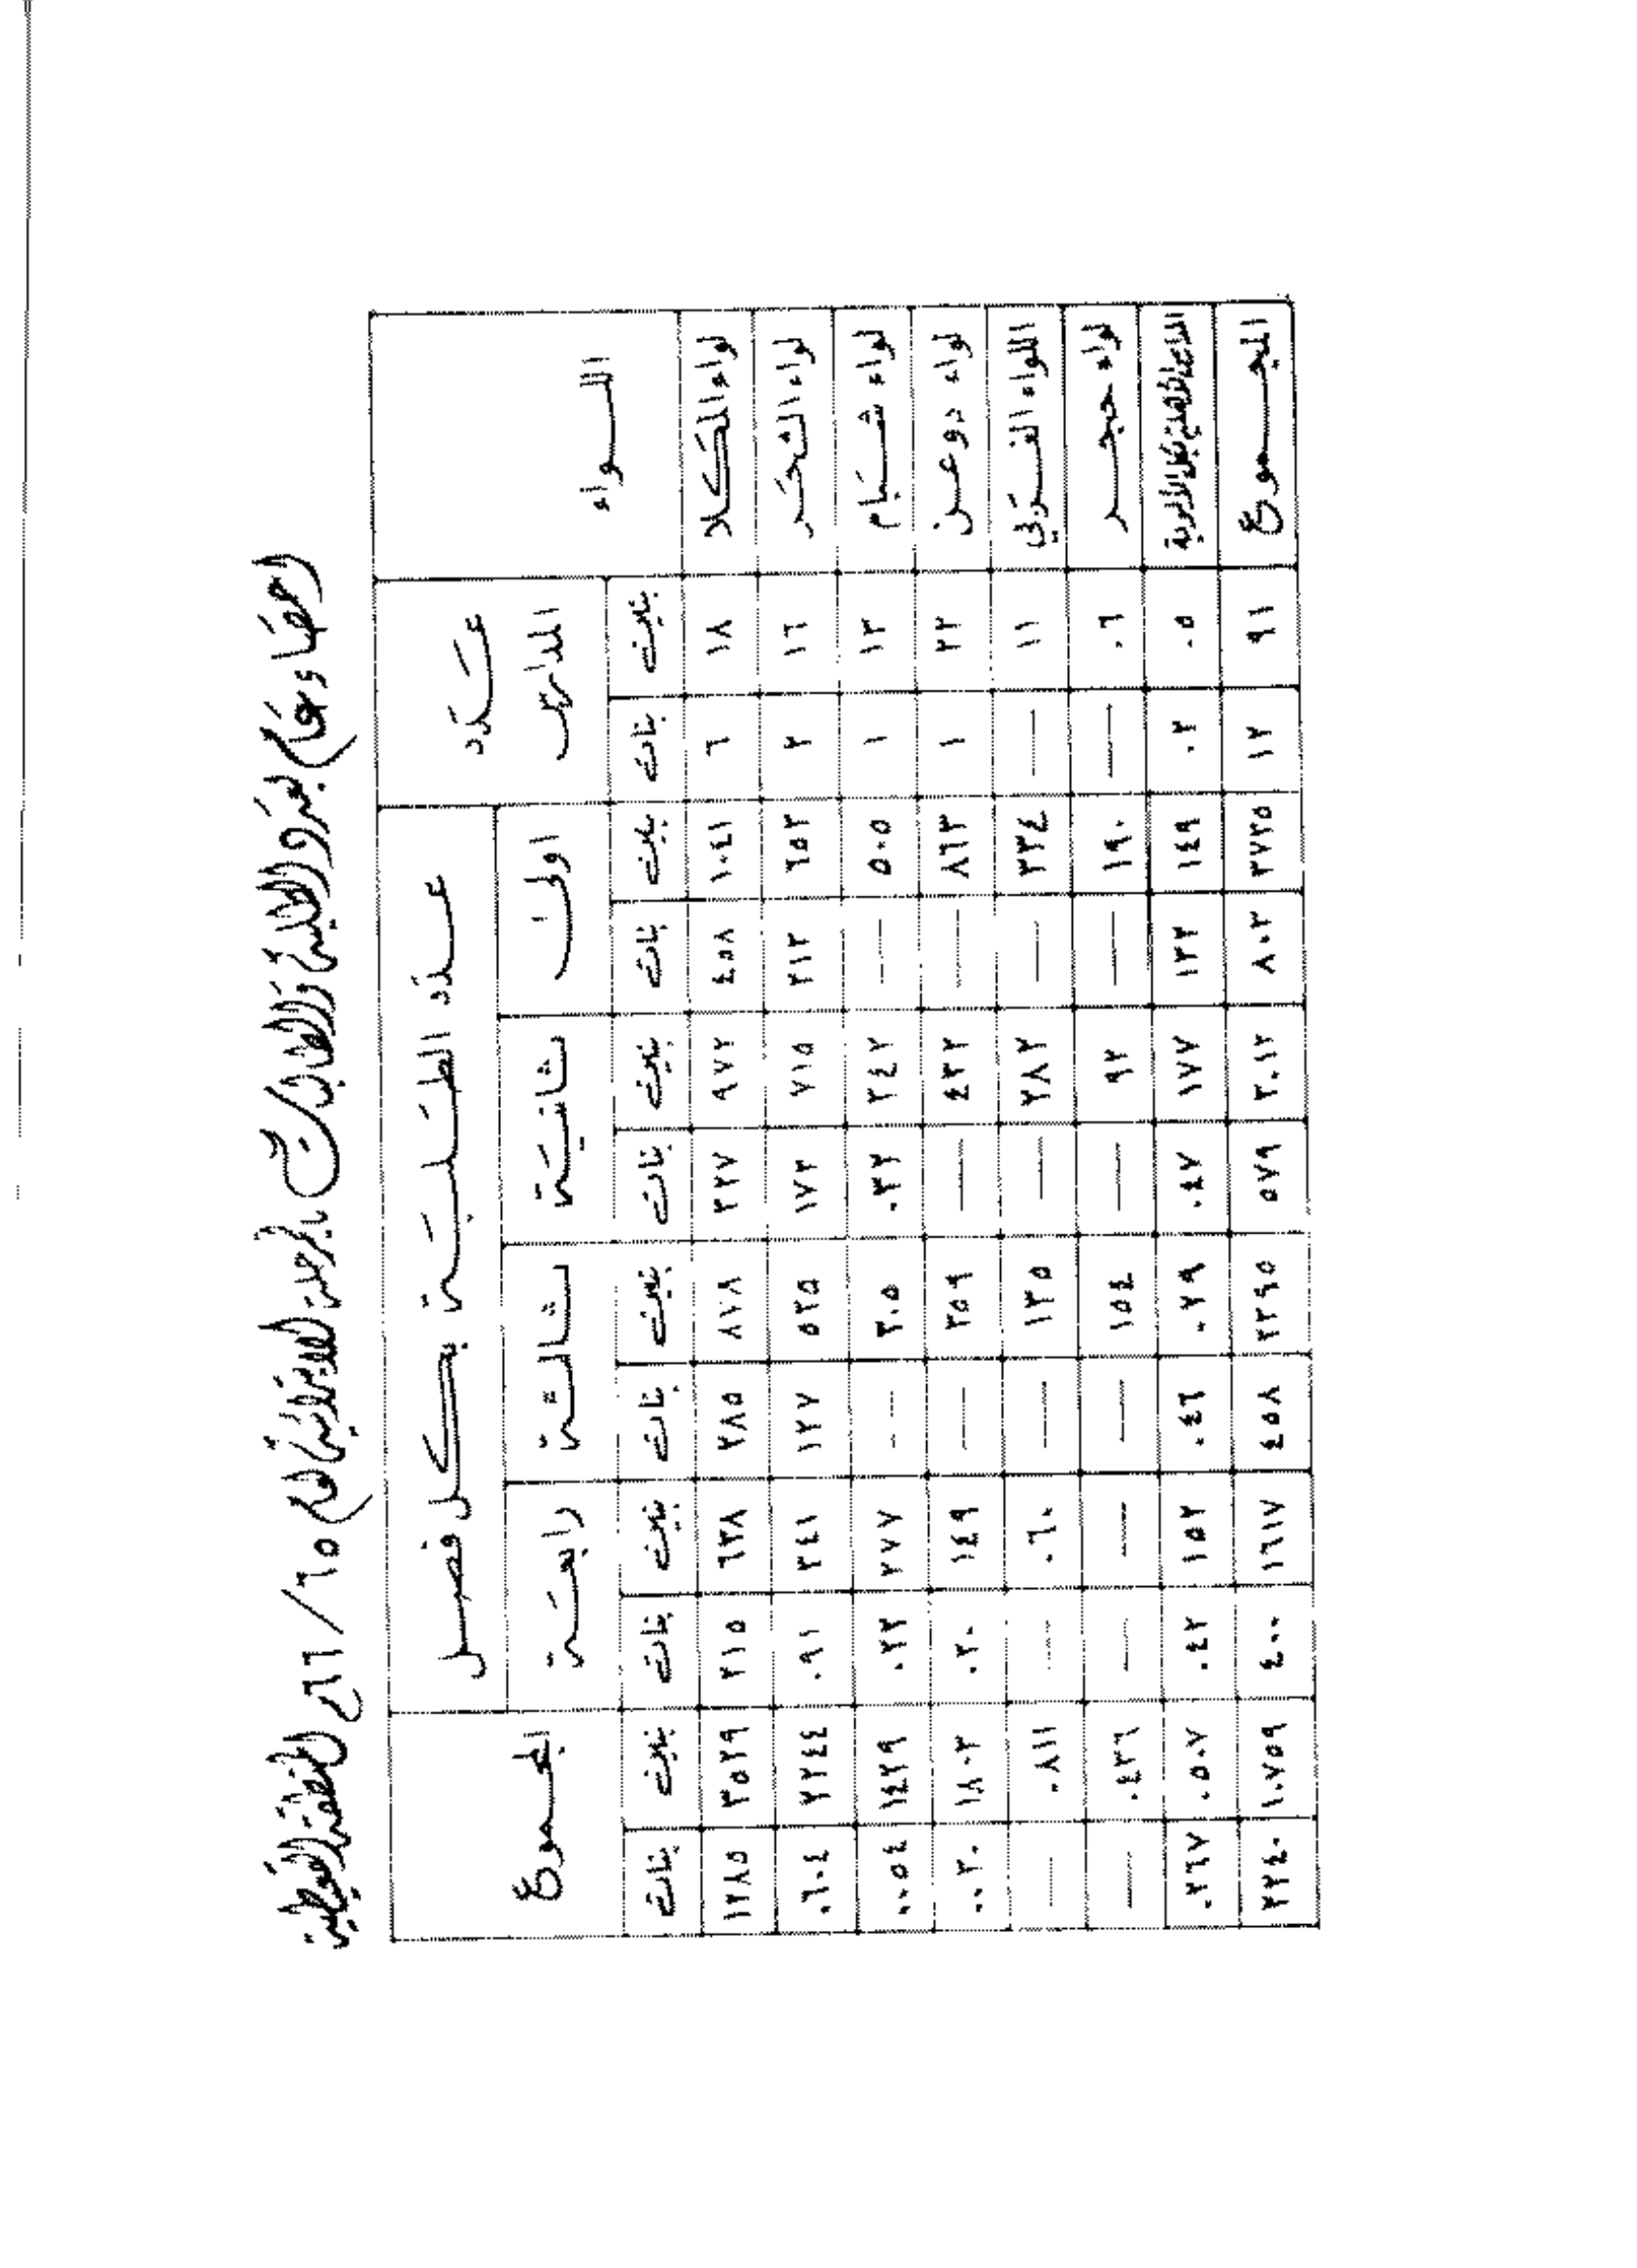 احصاء عام بعدد الطلبة والطالبات بالمرحلة الابتدائية لعام ٦٥/٦٦م المنطقة القعيطية
اللواء عدد المدارس عدد الطلبة بكل فصل المجموع
اولى ثانية ثالثة رابعة
بنين بنات بنين بنات بنين بنات بنين بنات بنين بنات بنين بنات
لواء المكلا ١٨ ٦ ١٠٤١ ٤٥٨ ٩٧٢ ٣٢٧ ٨٧٨ ٢٨٥ ٦٣٨ ٢١٥ ٣٥٢٩ ١٢٨٥
لواء الشحر ١٦ ٢ ٦٥٣ ٢١٣ ٧١٥ ١٧٣ ٥٣٥ ١٢٧ ٣٤١ ٠٩١ ٢٢٤٤ ٠٦٠٤
لواء شبام ١٣ ١ ٥٠٥ — ٣٤٢ ٠٣٢ ٣٠٥ — ٢٧٧ ٠٢٢ ١٤٢٩ ٠٠٥٤
لواء دوعن ٢٢ ١ ٨٦٣ — ٤٣٢ — ٣٥٩ — ١٤٩ ٠٣٠ ١٨٠٣ ٠٠٣٠
اللواء الغربي ١١ — ٣٣٤ — ٢٨٢ — ١٣٥ — ٠٦٠ — ٠٨١١ —
لواء حجر ٠٦ — ١٩٠ — ٩٢ — ١٥٤ — — — ٠٤٣٦ —
المدارس الاهلية بكل الألوية ٠٥ ٠٢ ١٤٩ ١٣٢ ١٧٧ ٠٤٧ ٠٧٩ ٠٤٦ ١٥٢ ٠٤٢ ٠٥٠٧ ٠٢٦٧
المجموع ٩١ ١٢ ٣٧٣٥ ٨٠٣ ٣٠١٢ ٥٧٩ ٢٣٩٥ ٤٥٨ ١٦١٧ ٤٠٠ ١٠٧٥٩ ٢٢٤٠